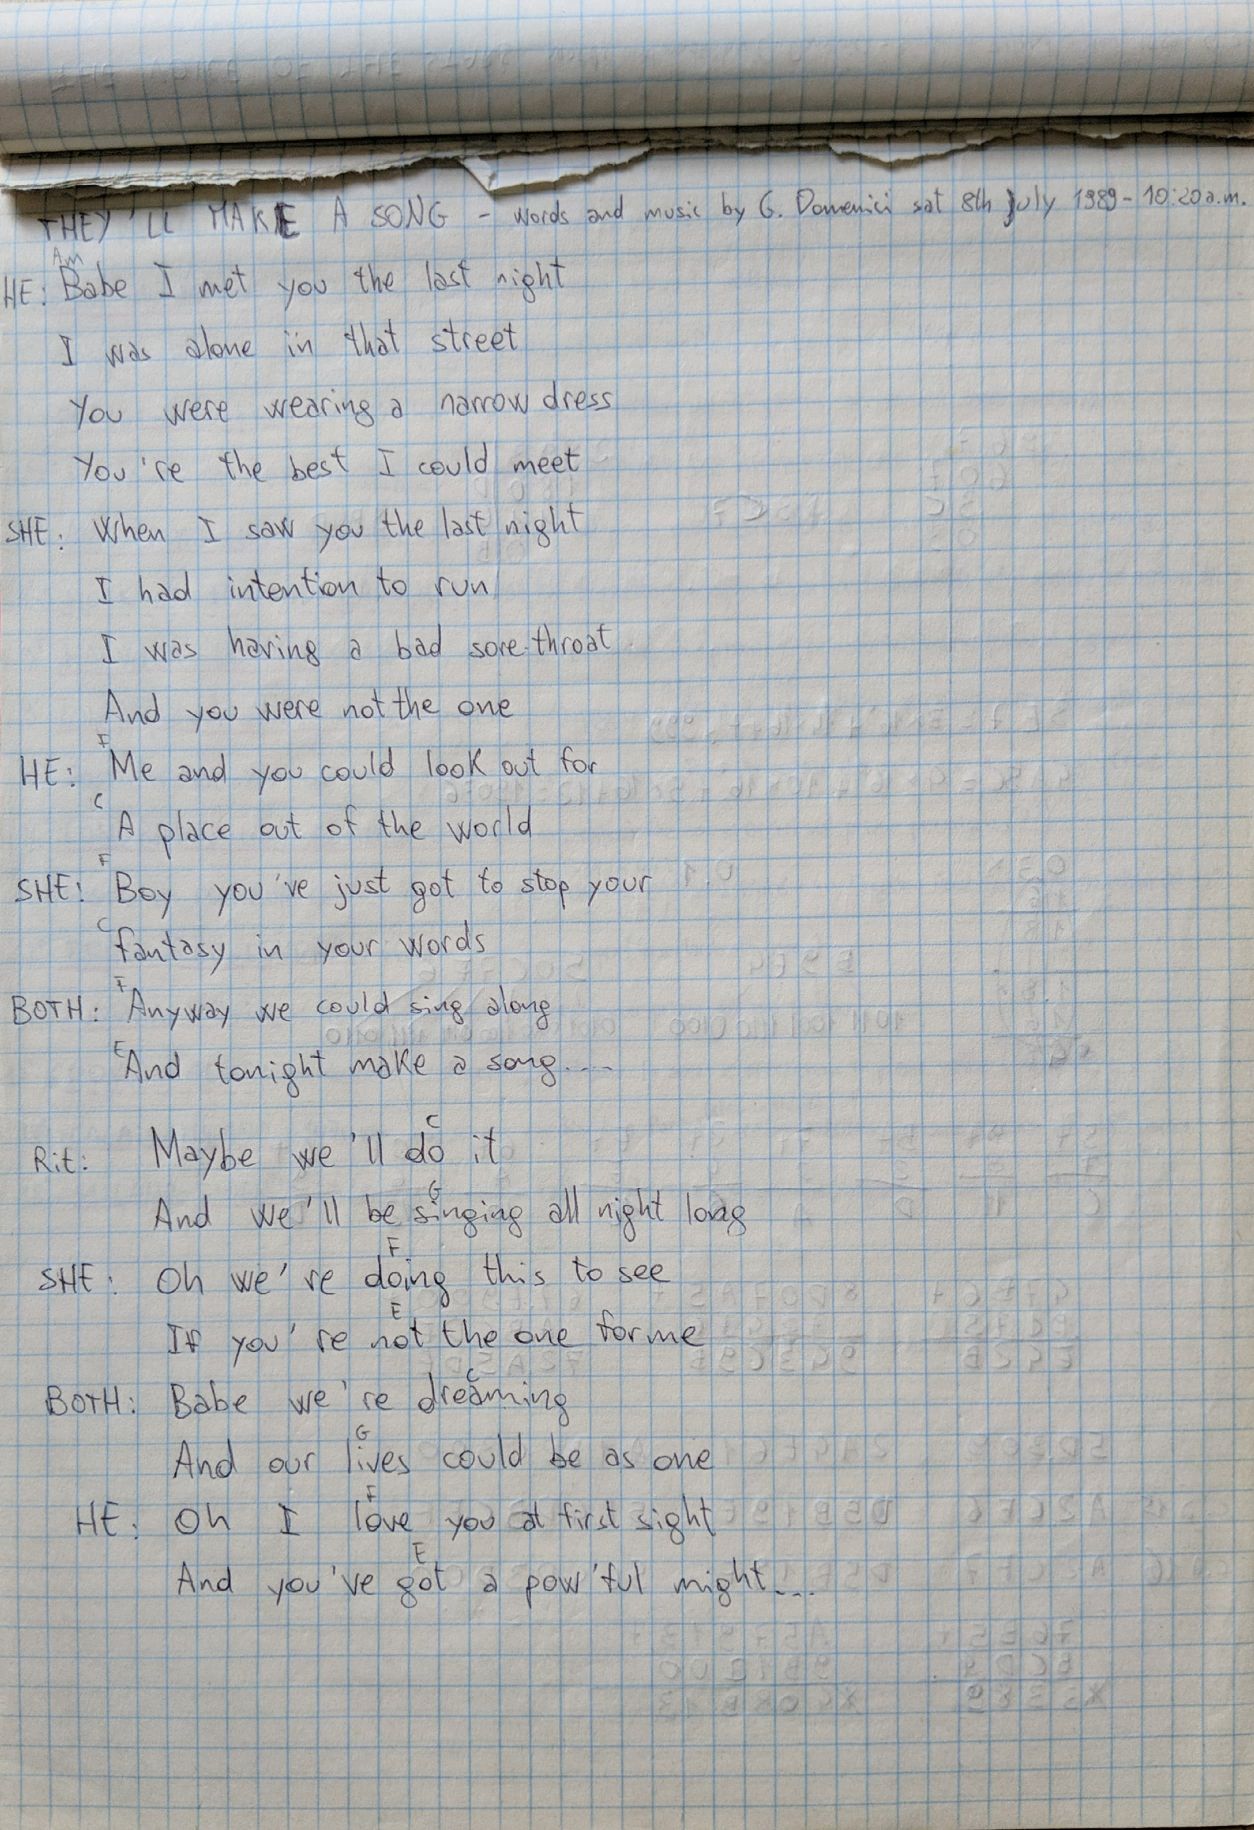 THEY'LL MAKE A SONG - words and music by G. Domenici sat 8th July 1989 - 10:20 a.m.
Am
HE: Babe I met you the last night
I was alone in that street
You were wearing a narrow dress
You're the best I could meet
SHE: When I saw you the last night
I had intention to run
I was having a bad sore throat
And you were not the one
F
HE: Me and you could look out for
C
A place out of the world
F
SHE: Boy you've just got to stop your
C
fantasy in your words
F
BOTH: Anyway we could sing along
E
And tonight make a song....
C
Rit: Maybe we'll do it
G
And we'll be singing all night long
F
SHE: Oh we're doing this to see
E
If you're not the one for me
C
BOTH: Babe we're dreaming
G
And our lives could be as one
F
HE: Oh I love you at first sight
E
And you've got a pow'ful might...